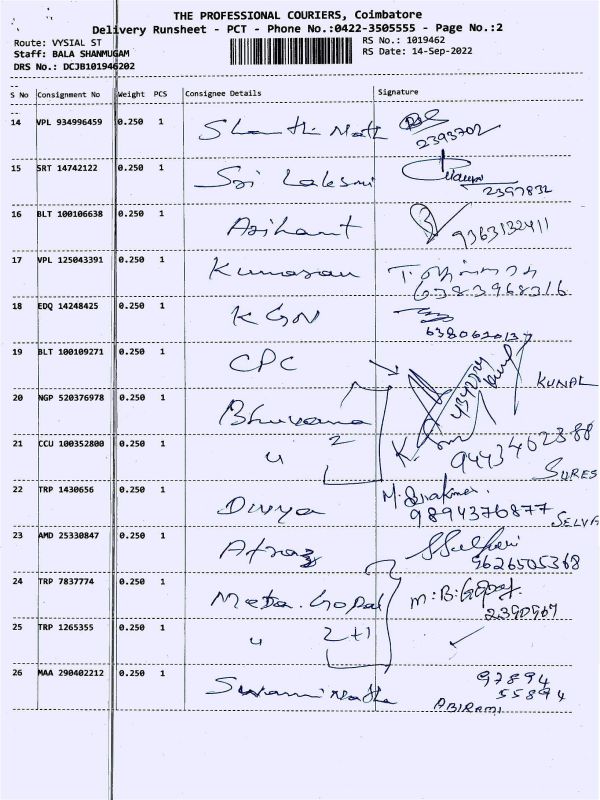 THE PROFESSIONAL COURIERS, Coimbatore
Delivery Runsheet - PCT - Phone No.:0422-3505555 - Page No.:2
Route: VYSIAL ST
RS No.: 1019462
Staff: BALA SHANMUGAM
RS Date: 14-Sep-2022
DRS No.: DCJB101946202
S No Consignment No Weight PCS Consignee Details Signature
14 VPL 934996459 0.250 1 Shanthi Math
2393702
15 SRT 14742122 0.250 1 Sri Laksmi
2397832
16 BLT 100106638 0.250 1 Arihant
9363132411
17 VPL 125043391 0.250 1 Kumaran
6383968316
18 EDQ 14248425 0.250 1 KGN
6380620137
19 BLT 100109271 0.250 1 CPC
KUNAL
20 NGP 520376978 0.250 1 Bhuvana
21 CCU 100352800 0.250 1 u 2
9443462388
SURES
22 TRP 1430656 0.250 1 Divya
9894376877
SELVA
23 AMD 25330847 0.250 1 Afraz
9626505368
24 TRP 7837774 0.250 1 Meta. Gopal M.B.Gopal
2390967
25 TRP 1265355 0.250 1 u 2+1
26 MAA 290402212 0.250 1 Swaminatha 97894
55894
ABIRAMI